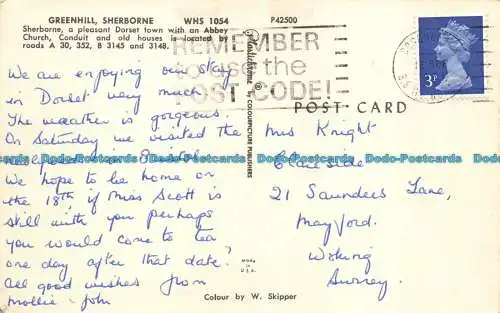 GREENHILL, SHERBORNE WHS 1054 P42500
Sherborne, a pleasant Dorset town with an Abbey
Church, Conduit and old houses is located by
roads A 30, 352, B 3145 and 3148.
REMEMBER
the
POST CODE!
3P
POST CARD
We are enjoying our stay
in Dorset very much.
The weather is gorgeous.
On Saturday we visited
We hope to be home on
the 18th, if Miss Scott is
still with you perhaps
you would come to tea
one day after that date.
All good wishes from
Mollie John
Plastichrome ® by COLOURPICTURE PUBLISHERS
MADE IN
U.S.A.
Mrs Knight
21 Saunders Lane,
Mayford.
Woking
Surrey.
Colour by W. Skipper
Dodo-Postcards Dodo-Postcards Dodo-Postcards Dodo-Postcards